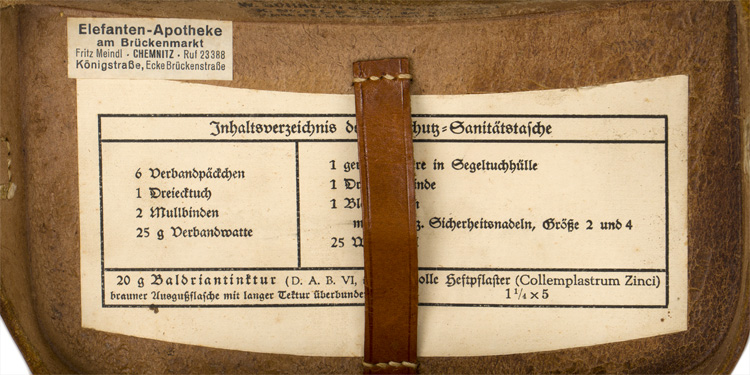 Elefanten-Apotheke
am Brückenmarkt
Fritz Meindl · CHEMNITZ · Ruf 23388
Königstraße, Ecke Brückenstraße
Inhaltsverzeichnis hutz-Sanitätstasche
6 Verbandpäckchen
1 Dreiecktuch
2 Mullbinden
25 g Verbandwatte
1 ge re in Segeltuchhülle
1 Dr inde
1 Bl
m z. Sicherheitsnadeln, Größe 2 und 4
25
20 g Baldriantinktur (D. A. B. VI,
brauner Ausgußflasche mit langer Tektur überbunden
olle Heftpflaster (Collemplastrum Zinci)
1 1/4 × 5